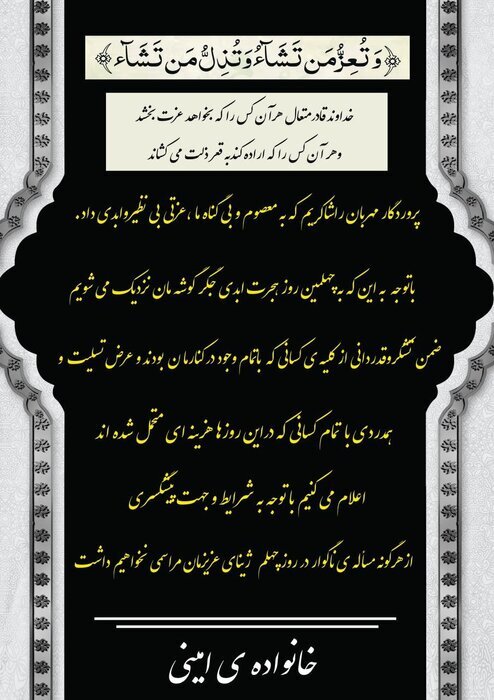 ﴿وَتُعِزُّ مَن تَشَآءُ وَتُذِلُّ مَن تَشَآء﴾
خداوند قادر متعال هر آن کس را که بخواهد عزت بخشد
و هر آن کس را که اراده کند به قعر ذلت می کشاند
پروردگار مهربان را شاکریم که به معصوم و بی گناه ما ، عزتی بی نظیر و ابدی داد.
باتوجه به این که به چهلمین روز هجرت ابدی جگر گوشه مان نزدیک می شویم
ضمن تشکر و قدردانی از کلیه ی کسانی که باتمام وجود در کنارمان بودند و عرض تسلیت و
همدردی با تمام کسانی که در این روزها هزینه ای متحمل شده اند
اعلام می کنیم باتوجه به شرایط و جهت پیشگسری
از هرگونه مسأله ی ناگوار در روز چهلم ژینای عزیزمان مراسمی نخواهیم داشت
خانواده ی امینی